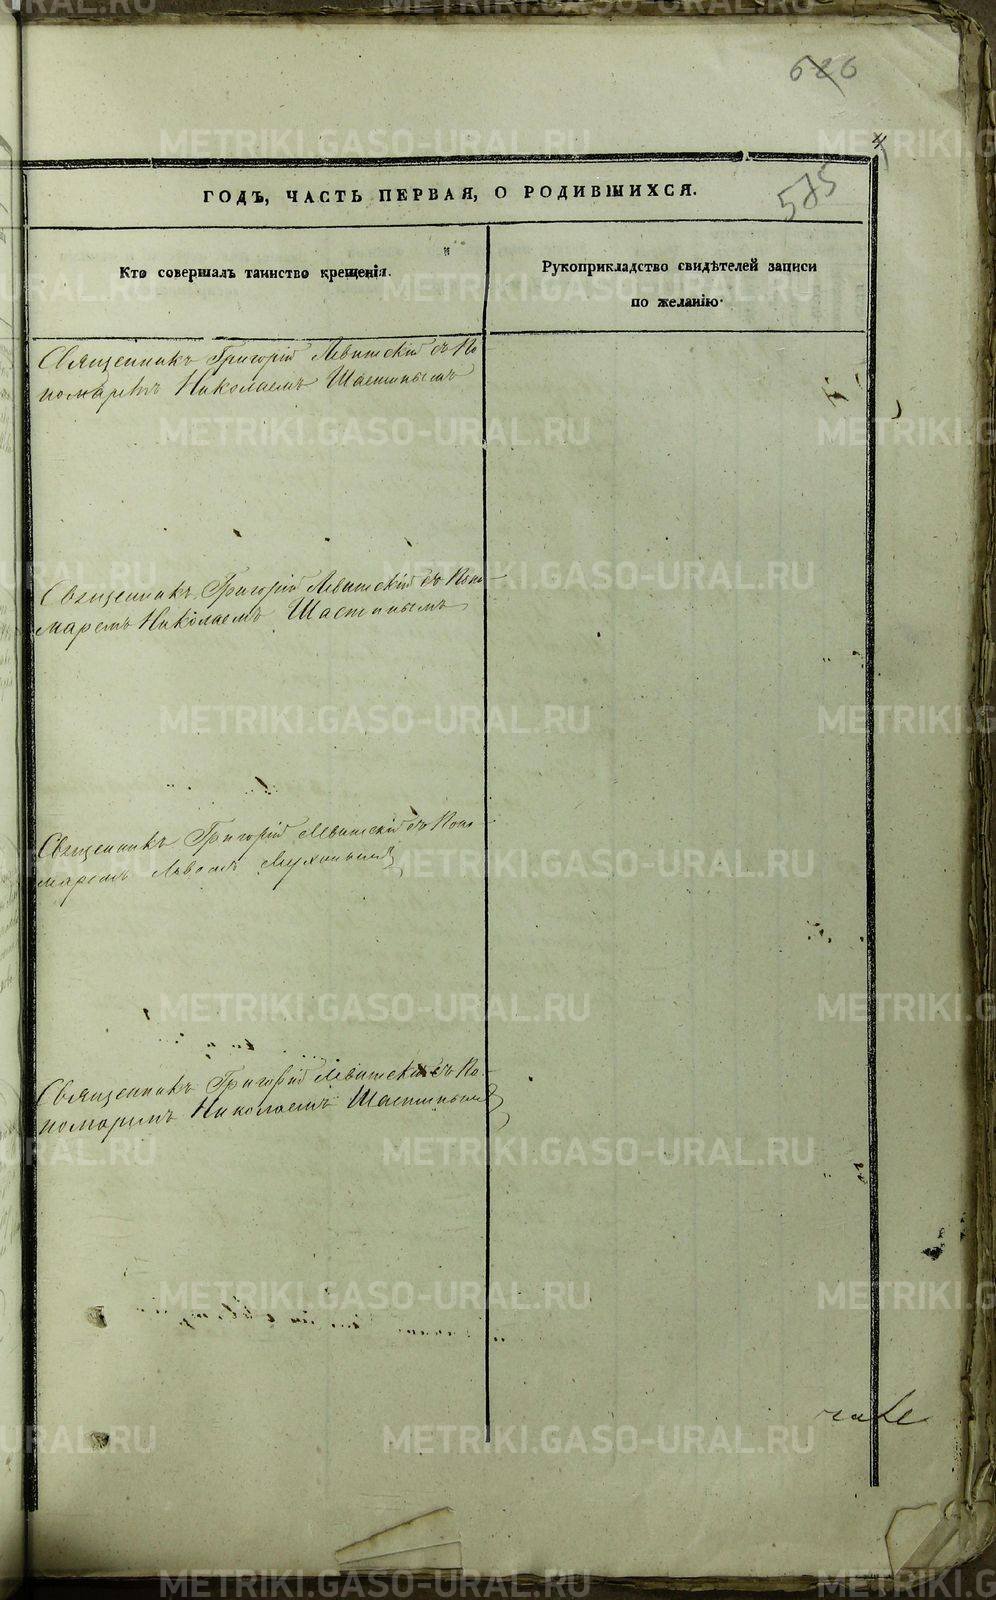 626
4
585
ГОДЪ, ЧАСТЬ ПЕРВАЯ, О РОДИВШИХСЯ.
Кто совершалъ таинство крещенія.
Рукоприкладство свидѣтелей записи
по желанію.
Священникъ Григорій Левитскій съ По
номаремъ Николаемъ Шастинымъ
Священникъ Григорій Левитскій съ Поно-
маремъ Николаемъ Шастинымъ
Священникъ Григорій Левитскій съ Поно
маремъ Львомъ Мухинымъ
Священникъ Григорій Левитскій съ По-
номаримъ Николаемъ Шастинымъ
METRIKI.GASO-URAL.RU